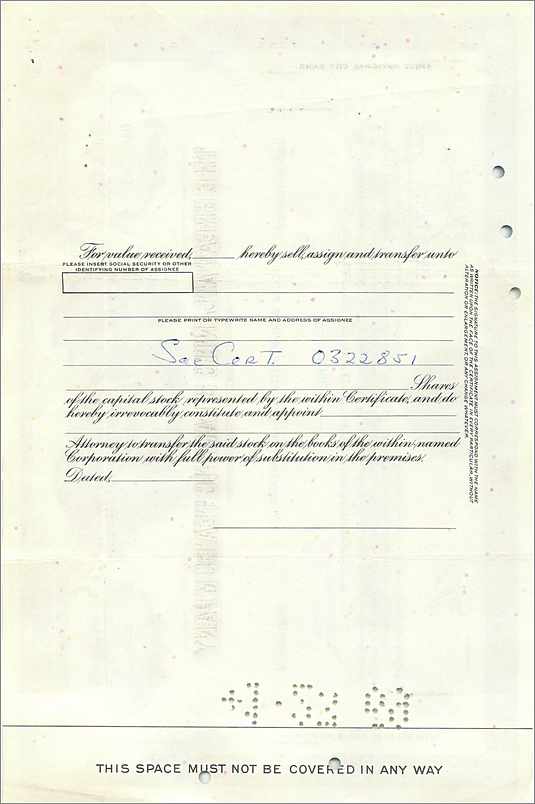 For value received, hereby sell, assign and transfer unto
PLEASE INSERT SOCIAL SECURITY OR OTHER
IDENTIFYING NUMBER OF ASSIGNEE
PLEASE PRINT OR TYPEWRITE NAME AND ADDRESS OF ASSIGNEE
See Cert. 0322851
Shares
of the capital stock represented by the within Certificate, and do
hereby irrevocably constitute and appoint
Attorney to transfer the said stock on the books of the within named
Corporation with full power of substitution in the premises.
Dated,
NOTICE: THE SIGNATURE TO THIS ASSIGNMENT MUST CORRESPOND WITH THE NAME
AS WRITTEN UPON THE FACE OF THE CERTIFICATE IN EVERY PARTICULAR, WITHOUT
ALTERATION OR ENLARGEMENT, OR ANY CHANGE WHATEVER.
THIS SPACE MUST NOT BE COVERED IN ANY WAY